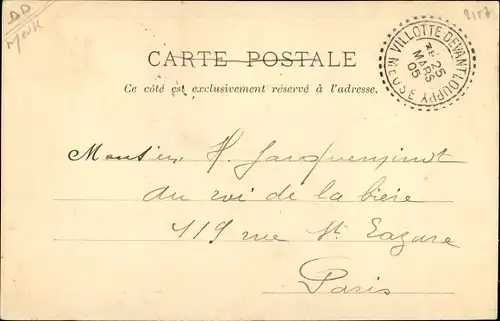 2157
CARTE POSTALE
Ce côté est exclusivement réservé à l'adresse.
VILLOTTE-DEVANT-LOUPPY MEUSE
25
MARS
05
Monsieur H. Jacqueminot
au roi de la bière
119 rue St Lazare
Paris